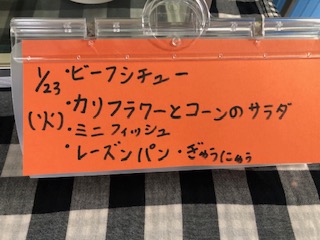 1/23・ビーフシチュー
・カリフラワーとコーンのサラダ
(火)・ミニフィッシュ
・レーズンパン・ぎゅうにゅう